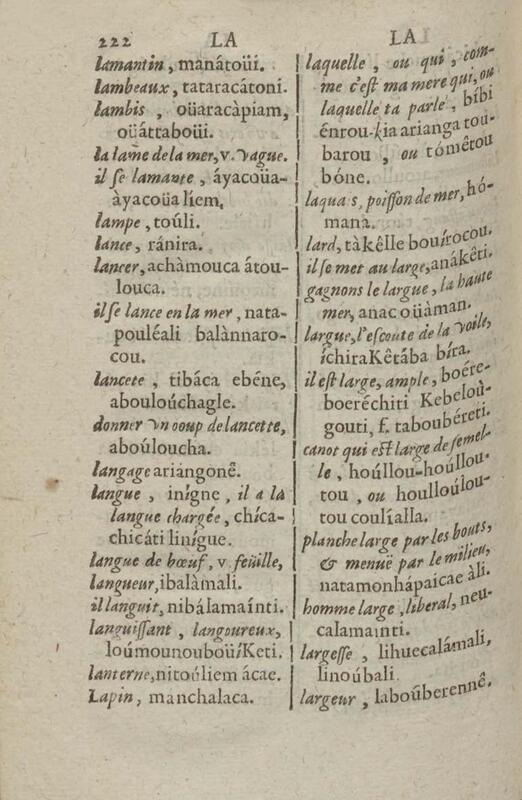 222 LA
lamantin, manátoüi.
lambeaux, tataracátoni.
lambis, oüaracàpiam,
oüáttaboüi.
la lame de la mer, v. Vague.
il ſe lamante, áyacoüa-
àyacoüa líem,
lampe, toúli.
lance, ránira.
lancer, achàmouca átou-
louca.
il ſe lance en la mer, nata-
pouléali balànnaro-
cou.
lancete, tibáca ebéne,
aboulouchagle.
donner vn ooup de lancette,
aboúloucha.
langage ariangonê.
langue, inígne, il a la
langue chargée, chíca-
chicáti linígue.
langue de bœuf, v feüille,
langueur, ibalàmali.
il languit, nibálamaínti.
languiſſant, langoureux,
loúmounouboüíKeti.
lanterne, nitoúliem ácae.
Lapin, manchalaca.
LA
laquelle, ou qui, com-
me c'eſt ma mere qui, ou
laquelle ta parlé, bíbi
énrou-kia arianga tou-
barou, ou tómêtou
bóne.
laquas, poiſſon de mer, hó-
mana.
lard, tàkêlle bouírocou.
il ſe met au large, anákêti.
gagnons le largue, la haute
mer, anac oüàman.
largue, l'eſcoute de la voile,
íchiraKêtába bíra.
il eſt large, ample, boére-
boeréchiti Kebeloù-
gouti, f. taboubéreti.
canot qui eſt large de ſemel-
le, hoúllou-hoúllou-
tou, ou houlloúlou-
tou coulíalla.
planche large par les bouts,
& menuë par le milieu,
natamonhápaicae àli.
homme large, liberal, neu-
calamainti.
largeſſe, lihuecalámali,
linoúbali.
largeur, laboúberennê.